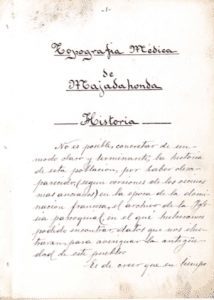 -1-
Topografía Médica
de
Majadahonda
Historia
No es posible, concretar de un
modo claro y terminante, la historia
de esta población, por haber desa-
parecido, (segun versiones de los vecinos
mas ancianos) en la época de la domi-
nacion francesa, el archivo de la Igle-
sia parroquial, en el que hubieramos
podido encontrar, datos que nos ilus-
traran, para averiguar la antigüe-
dad de este pueblo.
Es de creer que en tiempo